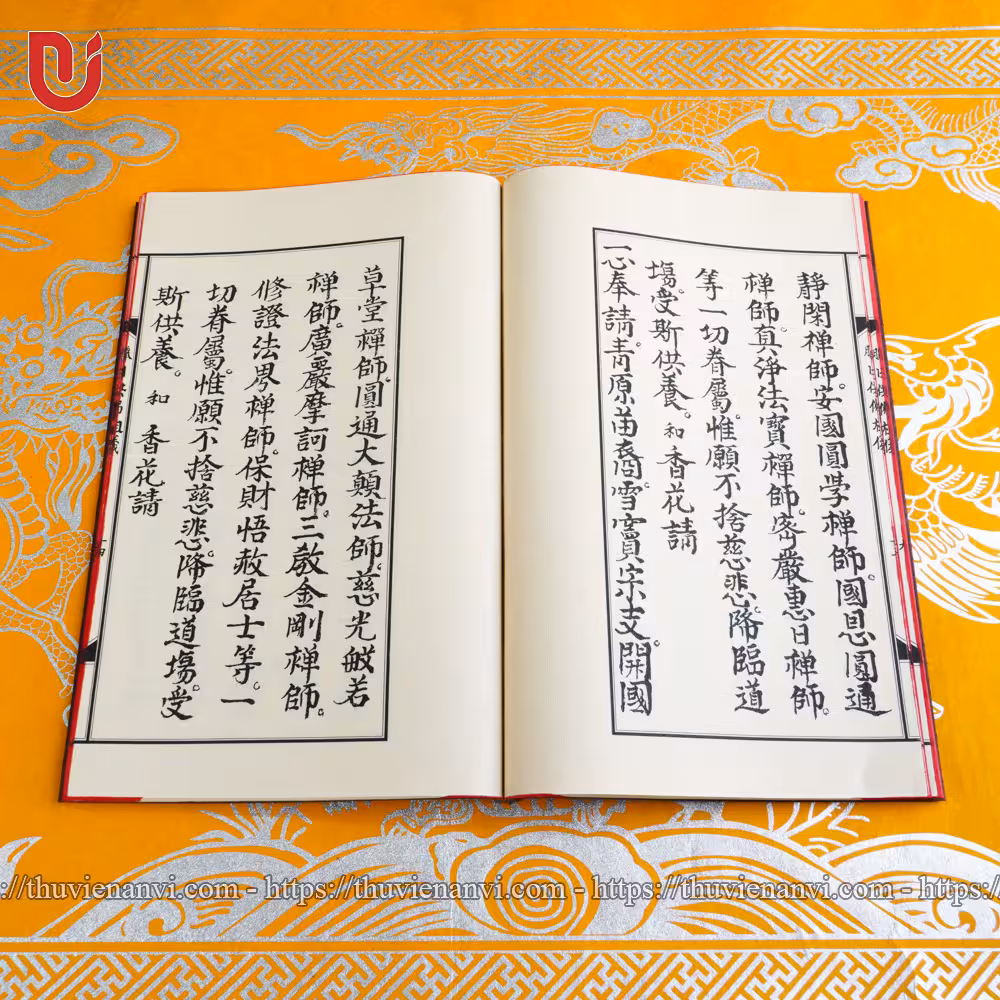 靜閑禅師。安國圓学禅師。國恩圓通
禅師。真淨法寶禪師。密嚴惠日禅師。
等一切眷屬。惟願不捨慈悲。降臨道
塲。受斯供養。和香花請
一心奉請。青原苗裔雪竇宗支。開國
草堂禪師。圓通大顛法師。慈光般若
禅師。廣嚴摩訶禅師。三教金剛禅師。
修證法界禅師。保財悟赦居士等。一
切眷屬。惟願不捨慈悲。降臨道塲。受
斯供養。和 香花請
https://thuvienanvi.com - https://thuvienanvi.com - https://thuvienanvi.com - https://